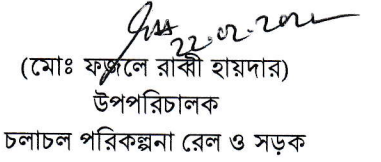 ২২.০২.২০২২
(মোঃ ফজলে রাব্বী হায়দার)
উপপরিচালক
চলাচল পরিকল্পনা রেল ও সড়ক